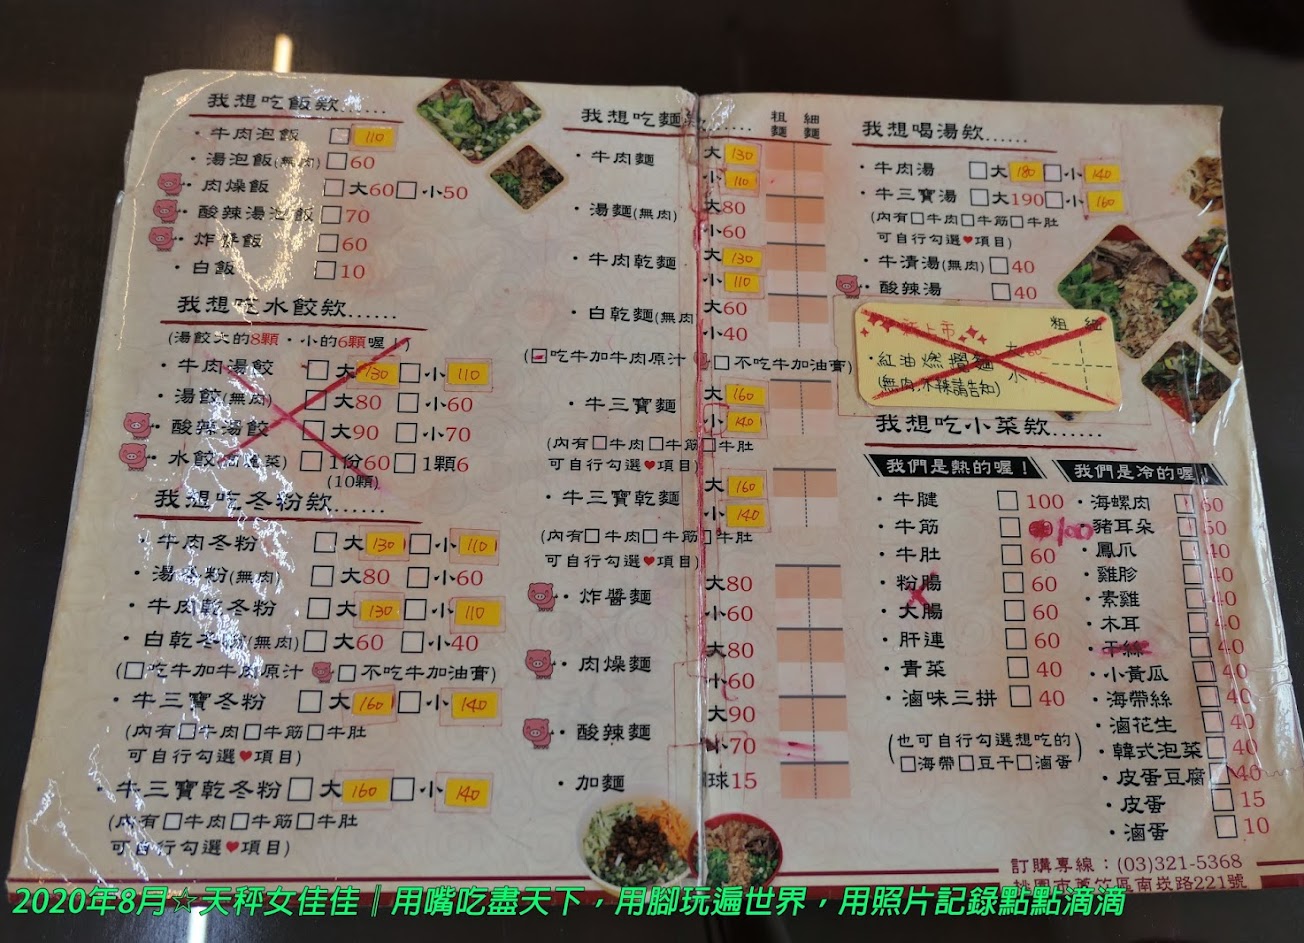 我想吃飯欸......
・牛肉泡飯 □ 110
・湯泡飯(無肉) □60
・肉燥飯 □大60□小50
・酸辣湯泡飯 □70
・炸醬飯 □60
・白飯 □10
我想吃水餃欸......
(湯餃大的8顆・小的6顆喔!)
・牛肉湯餃 □大130 □小110
・湯餃(無肉) □大80 □小60
・酸辣湯餃 □大90 □小70
・水餃(高麗菜) □1份60□1顆6
(10顆)
我想吃冬粉欸......
・牛肉冬粉 □大130 □小110
・湯冬粉(無肉) □大80 □小60
・牛肉乾冬粉 □大130 □小110
・白乾冬粉(無肉)□大60 □小40
(□吃牛加牛肉原汁 □不吃牛加油膏)
・牛三寶冬粉 □大160 □小140
(內有□牛肉□牛筋□牛肚
可自行勾選♥項目)
・牛三寶乾冬粉□大160 □小140
(內有□牛肉□牛筋□牛肚
可自行勾選♥項目)
我想吃麵欸...... 粗麵 細麵
・牛肉麵 大130
小110
・湯麵(無肉) 大80
小60
・牛肉乾麵 大130
小110
・白乾麵(無肉 大60
小40
(□吃牛加牛肉原汁 □不吃牛加油膏)
・牛三寶麵 大160
小140
(內有□牛肉□牛筋□牛肚
可自行勾選♥項目)
・牛三寶乾麵 大160
小140
(內有□牛肉□牛筋□牛肚
可自行勾選♥項目)
・炸醬麵 大80
小60
・肉燥麵 大80
小60
・酸辣麵 大90
小70
・加麵 球15
我想喝湯欸......
・牛肉湯 □大180□小140
・牛三寶湯 □大190□小160
(內有□牛肉□牛筋□牛肚
可自行勾選♥項目)
・牛清湯(無肉) □40
・酸辣湯 □40
新上市 粗 細
・紅油燃攪麵 大
(無肉,不辣請告知) 小
我想吃小菜欸......
我們是熱的喔!
・牛腱 □100
・牛筋 □ 100
・牛肚 □60
・粉腸 □60
・大腸 □60
・肝連 □60
・青菜 □40
・滷味三拼 □40
(也可自行勾選想吃的)
□海帶□豆干□滷蛋
我們是冷的喔!
・海螺肉 □60
・豬耳朵 □50
・鳳爪 □40
・雞胗 □40
・素雞 □40
・木耳 □40
・干絲 □40
・小黃瓜 □40
・海帶絲 □40
・滷花生 □40
・韓式泡菜□40
・皮蛋豆腐□40
・皮蛋 □15
・滷蛋 □10
訂購專線：(03)321-5368
桃園市蘆竹區南崁路221號
2020年8月☆天秤女佳佳‖用嘴吃盡天下，用腳玩遍世界，用照片記錄點點滴滴